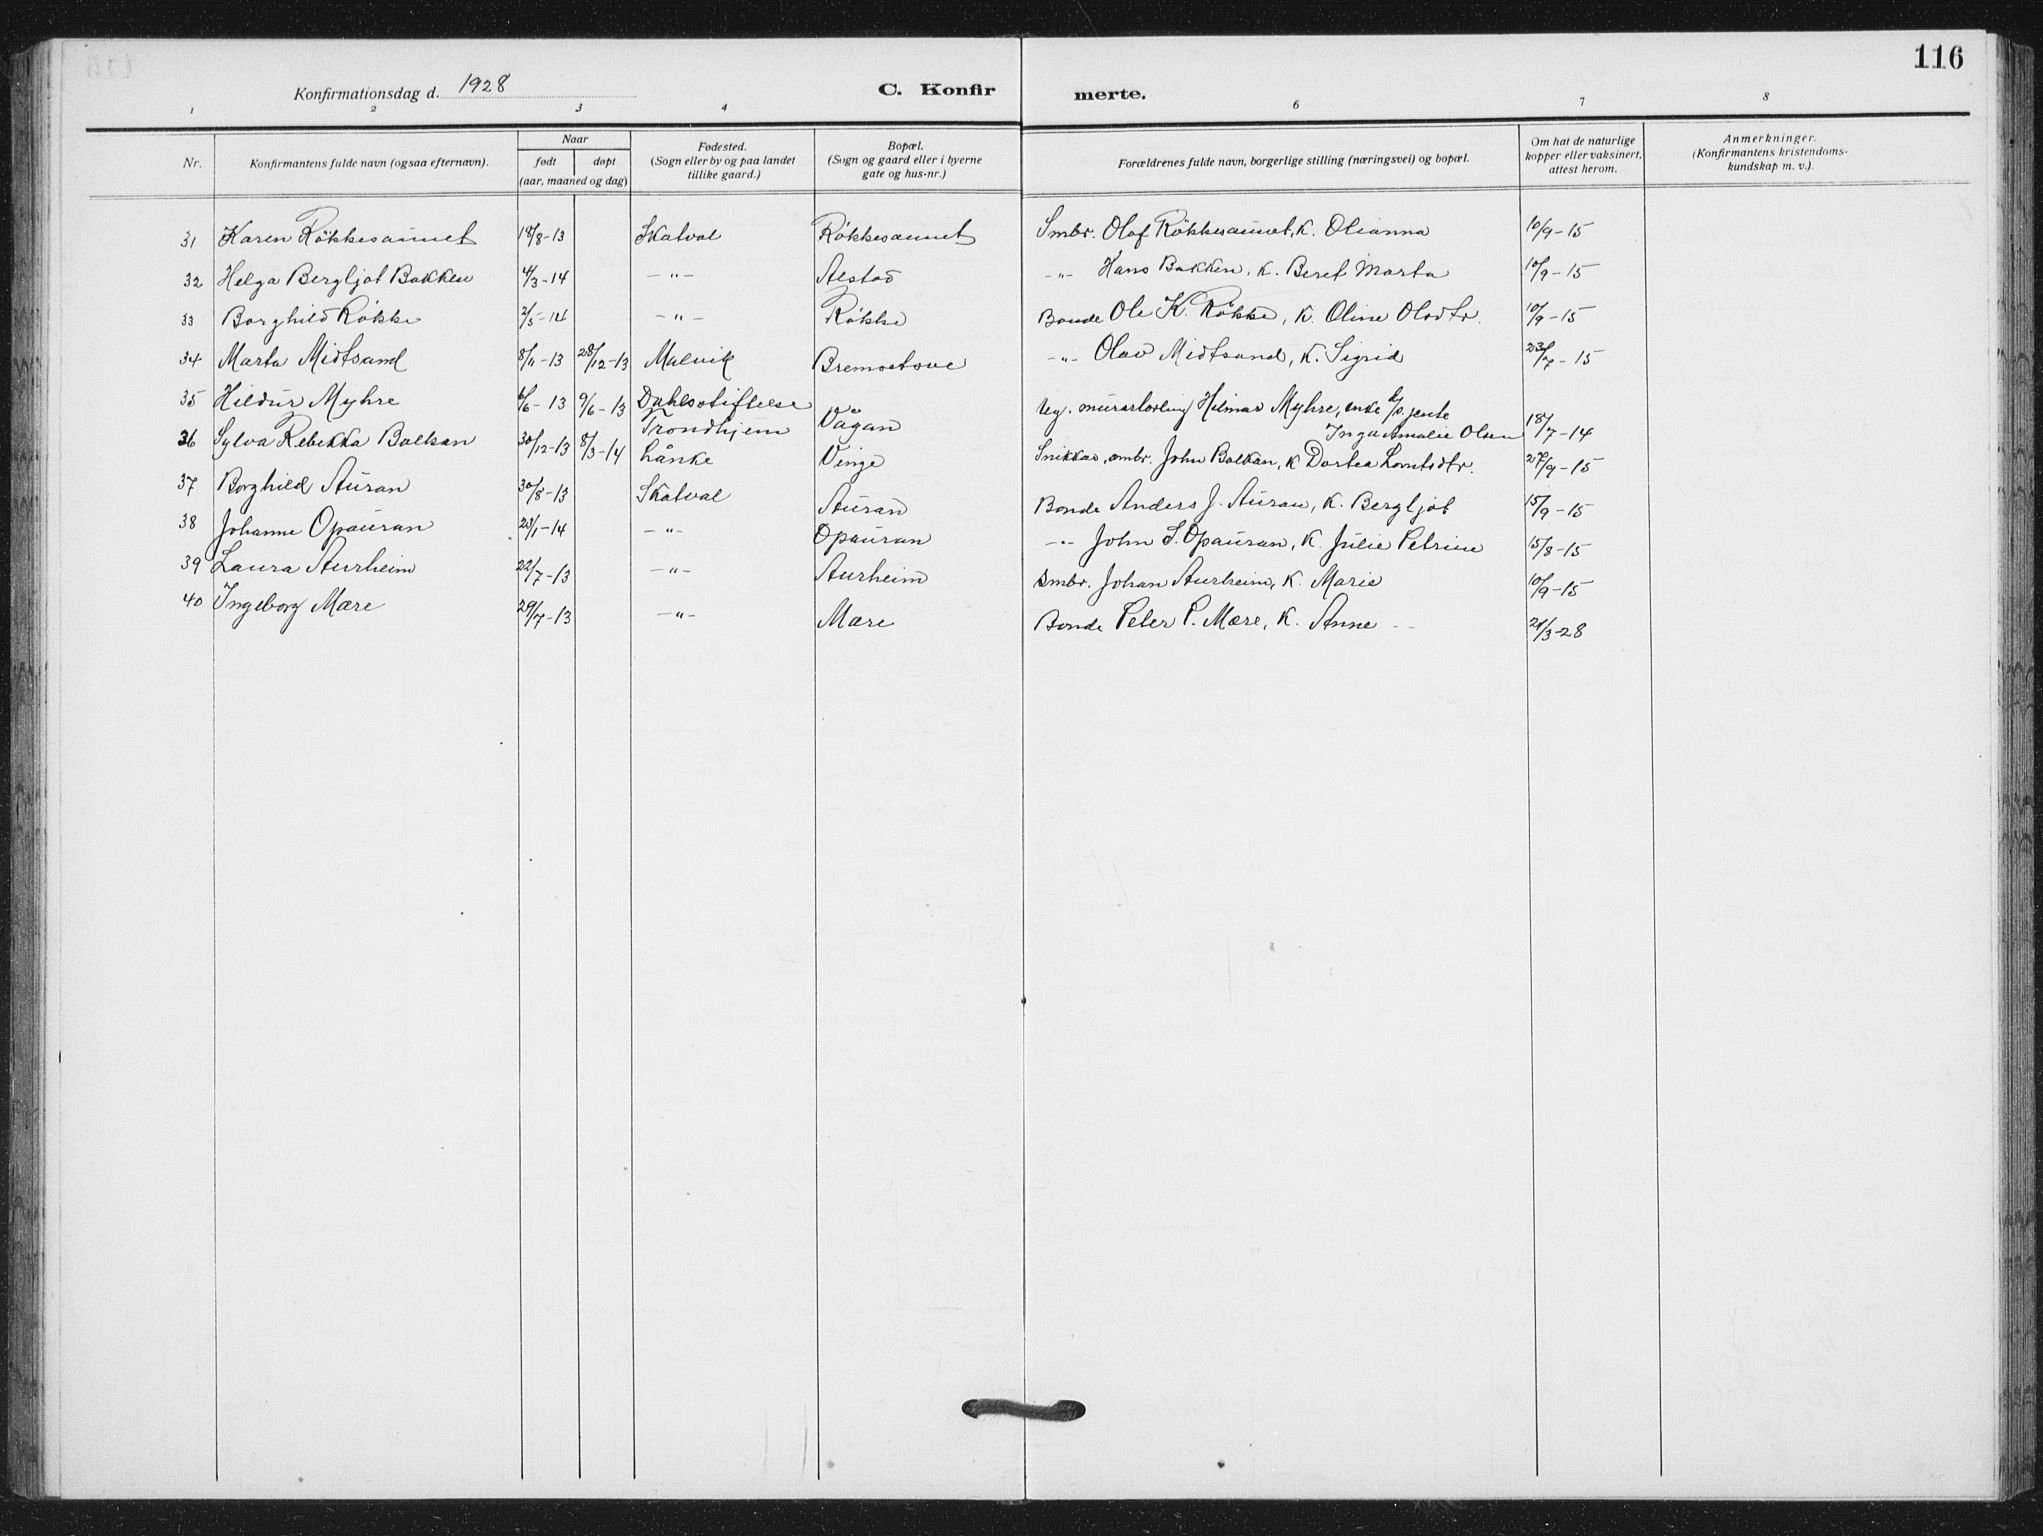 116
Konfirmationsdag d. 1928 C. Konfir merte.
1 2 3 4 6 7 8
Nr. Konfirmantens fulde navn (ogsaa efternavn). Naar født døpt (aar, maaned og dag) Fødested. (Sogn eller by og paa landet tillike gaard.) Bopæl. (Sogn og gaard eller i byerne gate og hus-nr.) Forældrenes fulde navn, borgerlige stilling (næringsvei) og bopæl. Om hat de naturlige kopper eller vaksinert, attest herom. Anmerkninger. (Konfirmantens kristendomskundskap m. v.).
31 Karen Røkkesaunet 18/8-13 Skatval Røkkesaunet Smbr. Olaf Røkkesaunet, K. Olianna 10/9-15
32 Helga Bergljot Bakken 4/3-14 -"- Alstad -"- Hans Bakken, K. Beret Marta 10/9-15
33 Borghild Røkke 2/5-14 -"- Røkke Bonde Ole K. Røkke, K. Oline Olsdtr. 10/9-15
34 Marta Midtsand 8/11-13 28/12-13 Malvik -"- Olav Midtsand, K. Sigrid 23/7-15
35 Hildur Myhre 6/6-13 9/6-13 Dahlsstiftelse Trondhjem Vågan Ug. murarlærling Hilmar Myhre, jente Inga Amalie Olsen 18/7-14
36 Sylva Rebekka Balkan 30/12-13 8/3-14 Lånke Vinge Snikkar, smbr. John Balkan, K Dortea Lorntsdtr. 27/9-15
37 Borghild Auran 30/8-13 Skatval Auran Bonde Anders J. Auran, K. Bergljot 15/9-15
38 Johanne Opauran 23/1-14 -"- Opauran -"- John S. Opauran, K. Julie Petrine 15/8-15
39 Laura Aurheim 22/7-13 -"- Aurheim Smbr. Johan Aurheim, K. Marie 10/9-15
40 Ingeborg Mære 29/7-13 -"- Mære Bonde Peter P. Mære, K. Anne 21/3-28